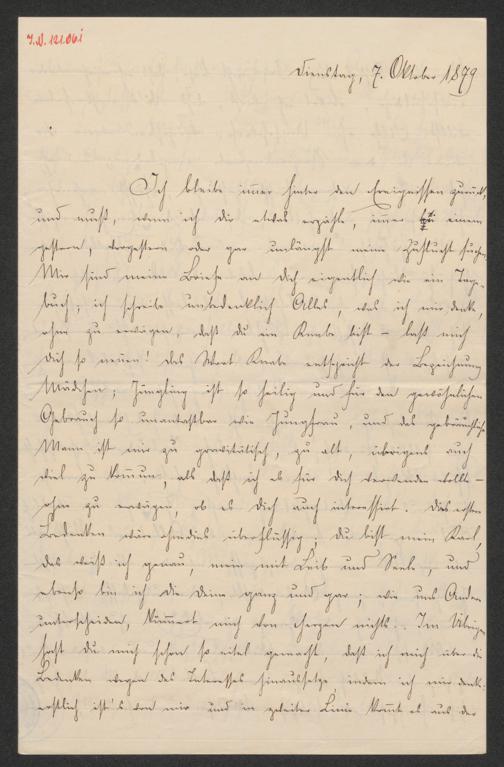 J.N. 121.061
Dienstag, 7. Oktober 1879
Ich bleibe immer hinter den Ereignissen zurück,
und muß, wenn ich dir etwas erzähle, immer zu einem
gestern, vorgestern oder gar unlängst meine Zuflucht suchen.
Mir sind meine Briefe an dich eigentlich wie ein Tage-
buch; ich schreibe unbedenklich Alles, was ich mir denke,
ohne zu erwägen, daß du ein Knabe bist – laß mich
dich so nennen! das Wort Knabe entspricht der Bezeichnung
Mädchen; Jüngling ist so heilig und für den gewöhnlichen
Gebrauch so unantastbar wie Jungfrau, und das gebräuchliche
Mann ist mir zu gravitätisch, zu alt, übrigens auch
viel zu kommun, als daß ich es für dich verwenden wollte –
ohne zu erwägen, ob es dich auch interessirt. Das erste
Bedenken wäre ohnedies überflüssig; du bist mein Karl,
das weiß ich genau, mein mit Leib und Seele, und
ebenso bin ich die deine ganz und gar; wie uns Andre
unterscheiden, kümmert mich von Herzen nichts. Im Übrigen
hast du mich schon so eitel gemacht, daß ich mich über die
Bedenken wegen des Interesses hinaussetze indem ich mir denke:
erstlich ist's von mir und in zweiter Linie kommt es aus der